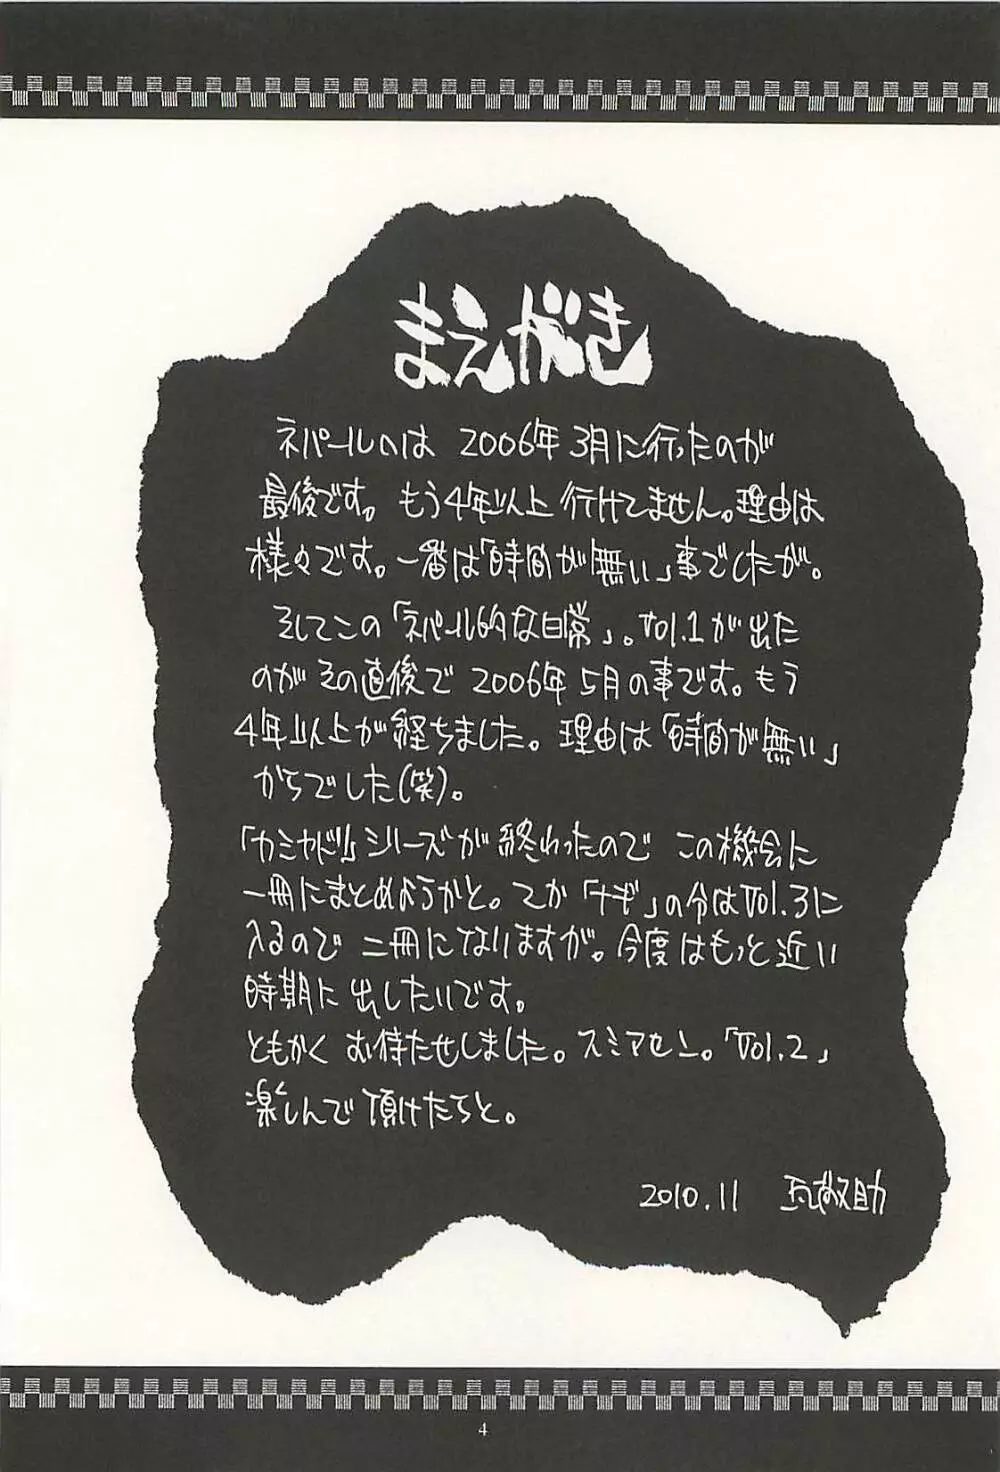 まえがき
ネパールへは 2006年 3月に行ったのが
最後です。もう4年以上 行けてません。理由は
様々です。一番は「時間が無い」事でしたが。
そしてこの「ネパール的な日常」。Vol.1が出た
のが その直後で 2006年 5月の事です。もう
4年以上が経ちました。理由は「時間が無い」
からでした(笑)。
「カミヤドリ」シリーズが 終わったので この機会に
一冊にまとめようかと。てか「ナギ」の分はVol.3に
入るので 二冊になりますが。今度はもっと近い
時期に 出したいです。
ともかく お待たせしました。スミマセン。「Vol.2」
楽しんで 頂けたらと。
2010.11 瓦敬助
4